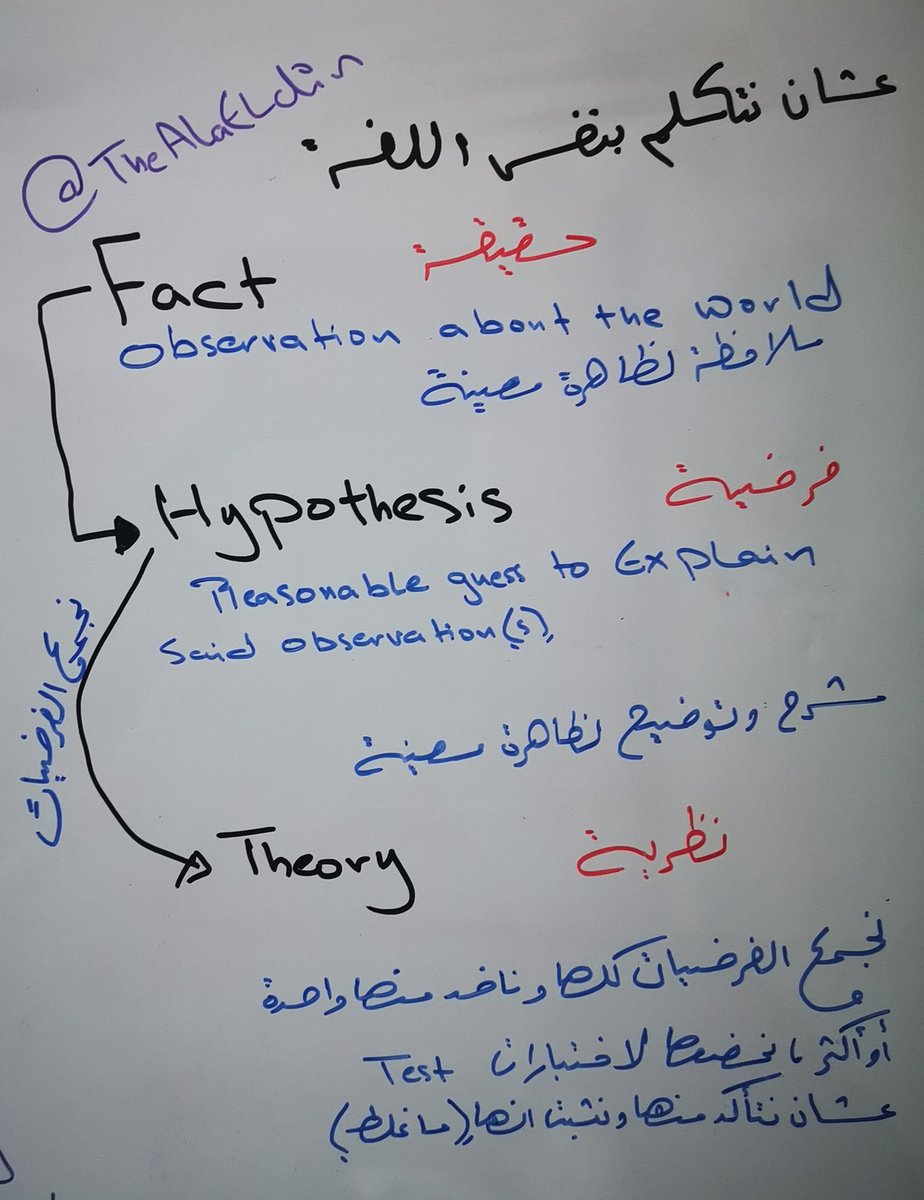 @TheALaELdin
عشان نتكلم بنفس اللغة
Fact
حقيقة
observation about the world
ملاحظة لظاهرة معينة
Hypothesis
فرضية
Reasonable guess to Explain
Said observation(s),
شرح وتوضيح لظاهرة معينة
نجمع الفرضيات
Theory
نظرية
نجمع الفرضيات كلها وناخد منها واحدة
أو أكثر نخضعها لاختبارات Test
عشان نتأكد منها ونثبت انها (ما غلط)